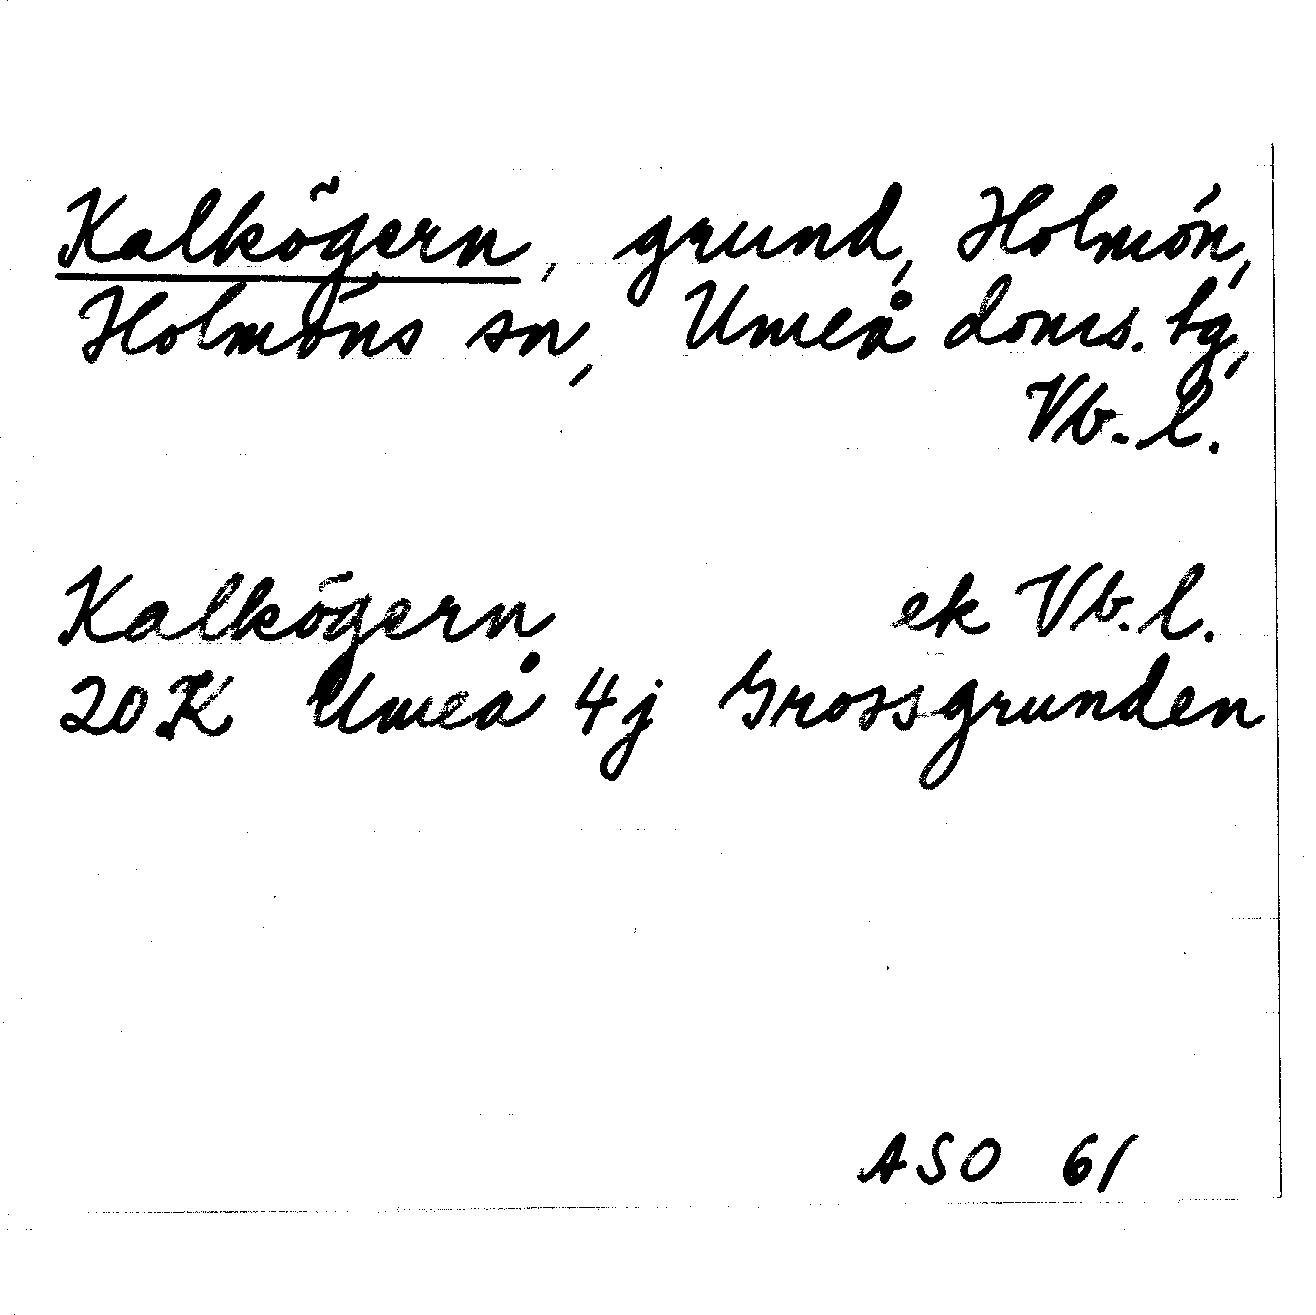 Kalkögern, grund, Holmön,
Holmöns sn, Umeå doms. tg,
Vb. l.
Kalkögern ek Vb. l.
20 K Umeå 4j Grossgrunden
ASO 61